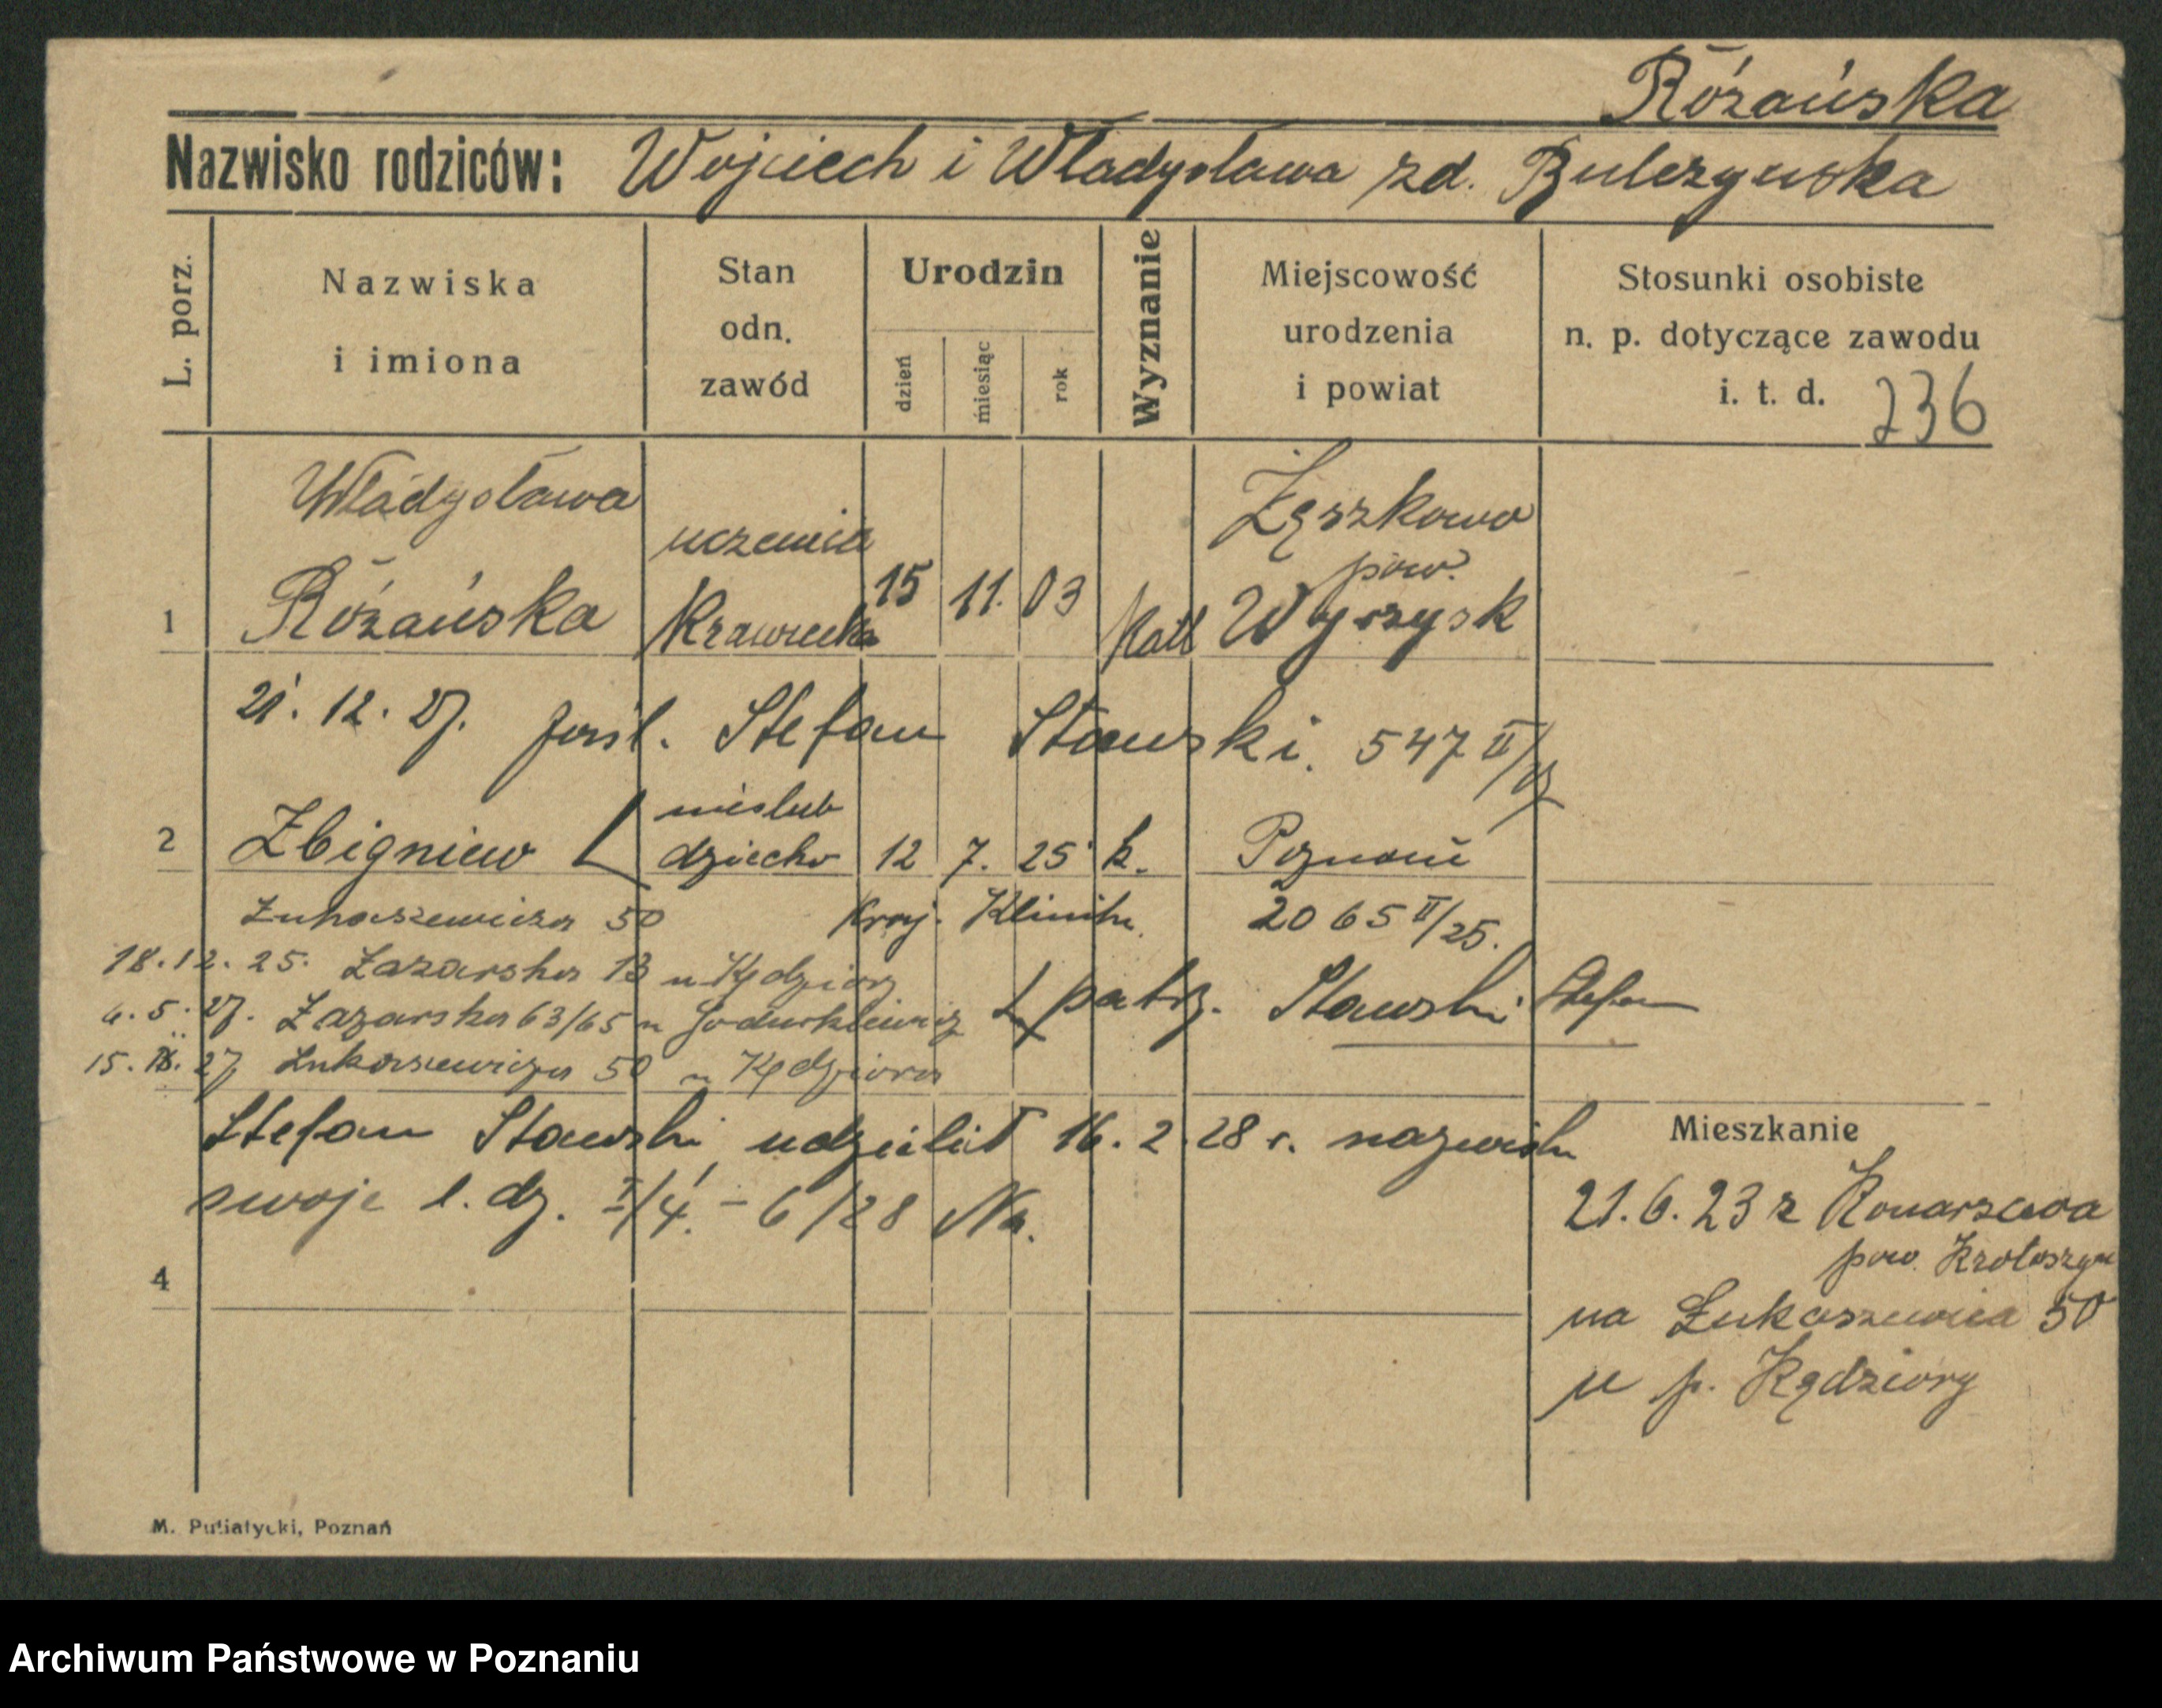 Różańska
Nazwisko rodziców: Wojciech i Władysława zd. Bulczyńska
L. porz.
Nazwiska
i imiona
Stan
odn.
zawód
Urodzin
dzień
miesiąc
rok
Wyznanie
Miejscowość
urodzenia
i powiat
Stosunki osobiste
n. p. dotyczące zawodu
i. t. d. 236
1 Władysława
Różańska
uczenica
Krawiecka
15 11. 03
Katl
pow.
Wyrzysk
21. 12. 27. Stefan Stawski. 547 II/27
2 Zbigniew
nieslub
dziecko 12 7. 25 k. Poznań
Łukaszewicza 50 Kraj. Klinika 2065 II/25.
18.12. 25. Łazarska 13 u Kędziory
6. 5. 27. Łazarska 63/65 u
patrz. Stawski Stefan
15. IX. 27 Łukaszewicza 50 u Kędziora
Stefan Stawski udzielił 16. 2. 28 r. nazwisko
swoje l. dz. I/4. - 6/28 Na.
4
Mieszkanie
21. 6. 23 z Konarzewa
pow. Krotoszyn
na Łukaszewicza 50
u p. Kędziory
M. Putiatycki, Poznań
Archiwum Państwowe w Poznaniu